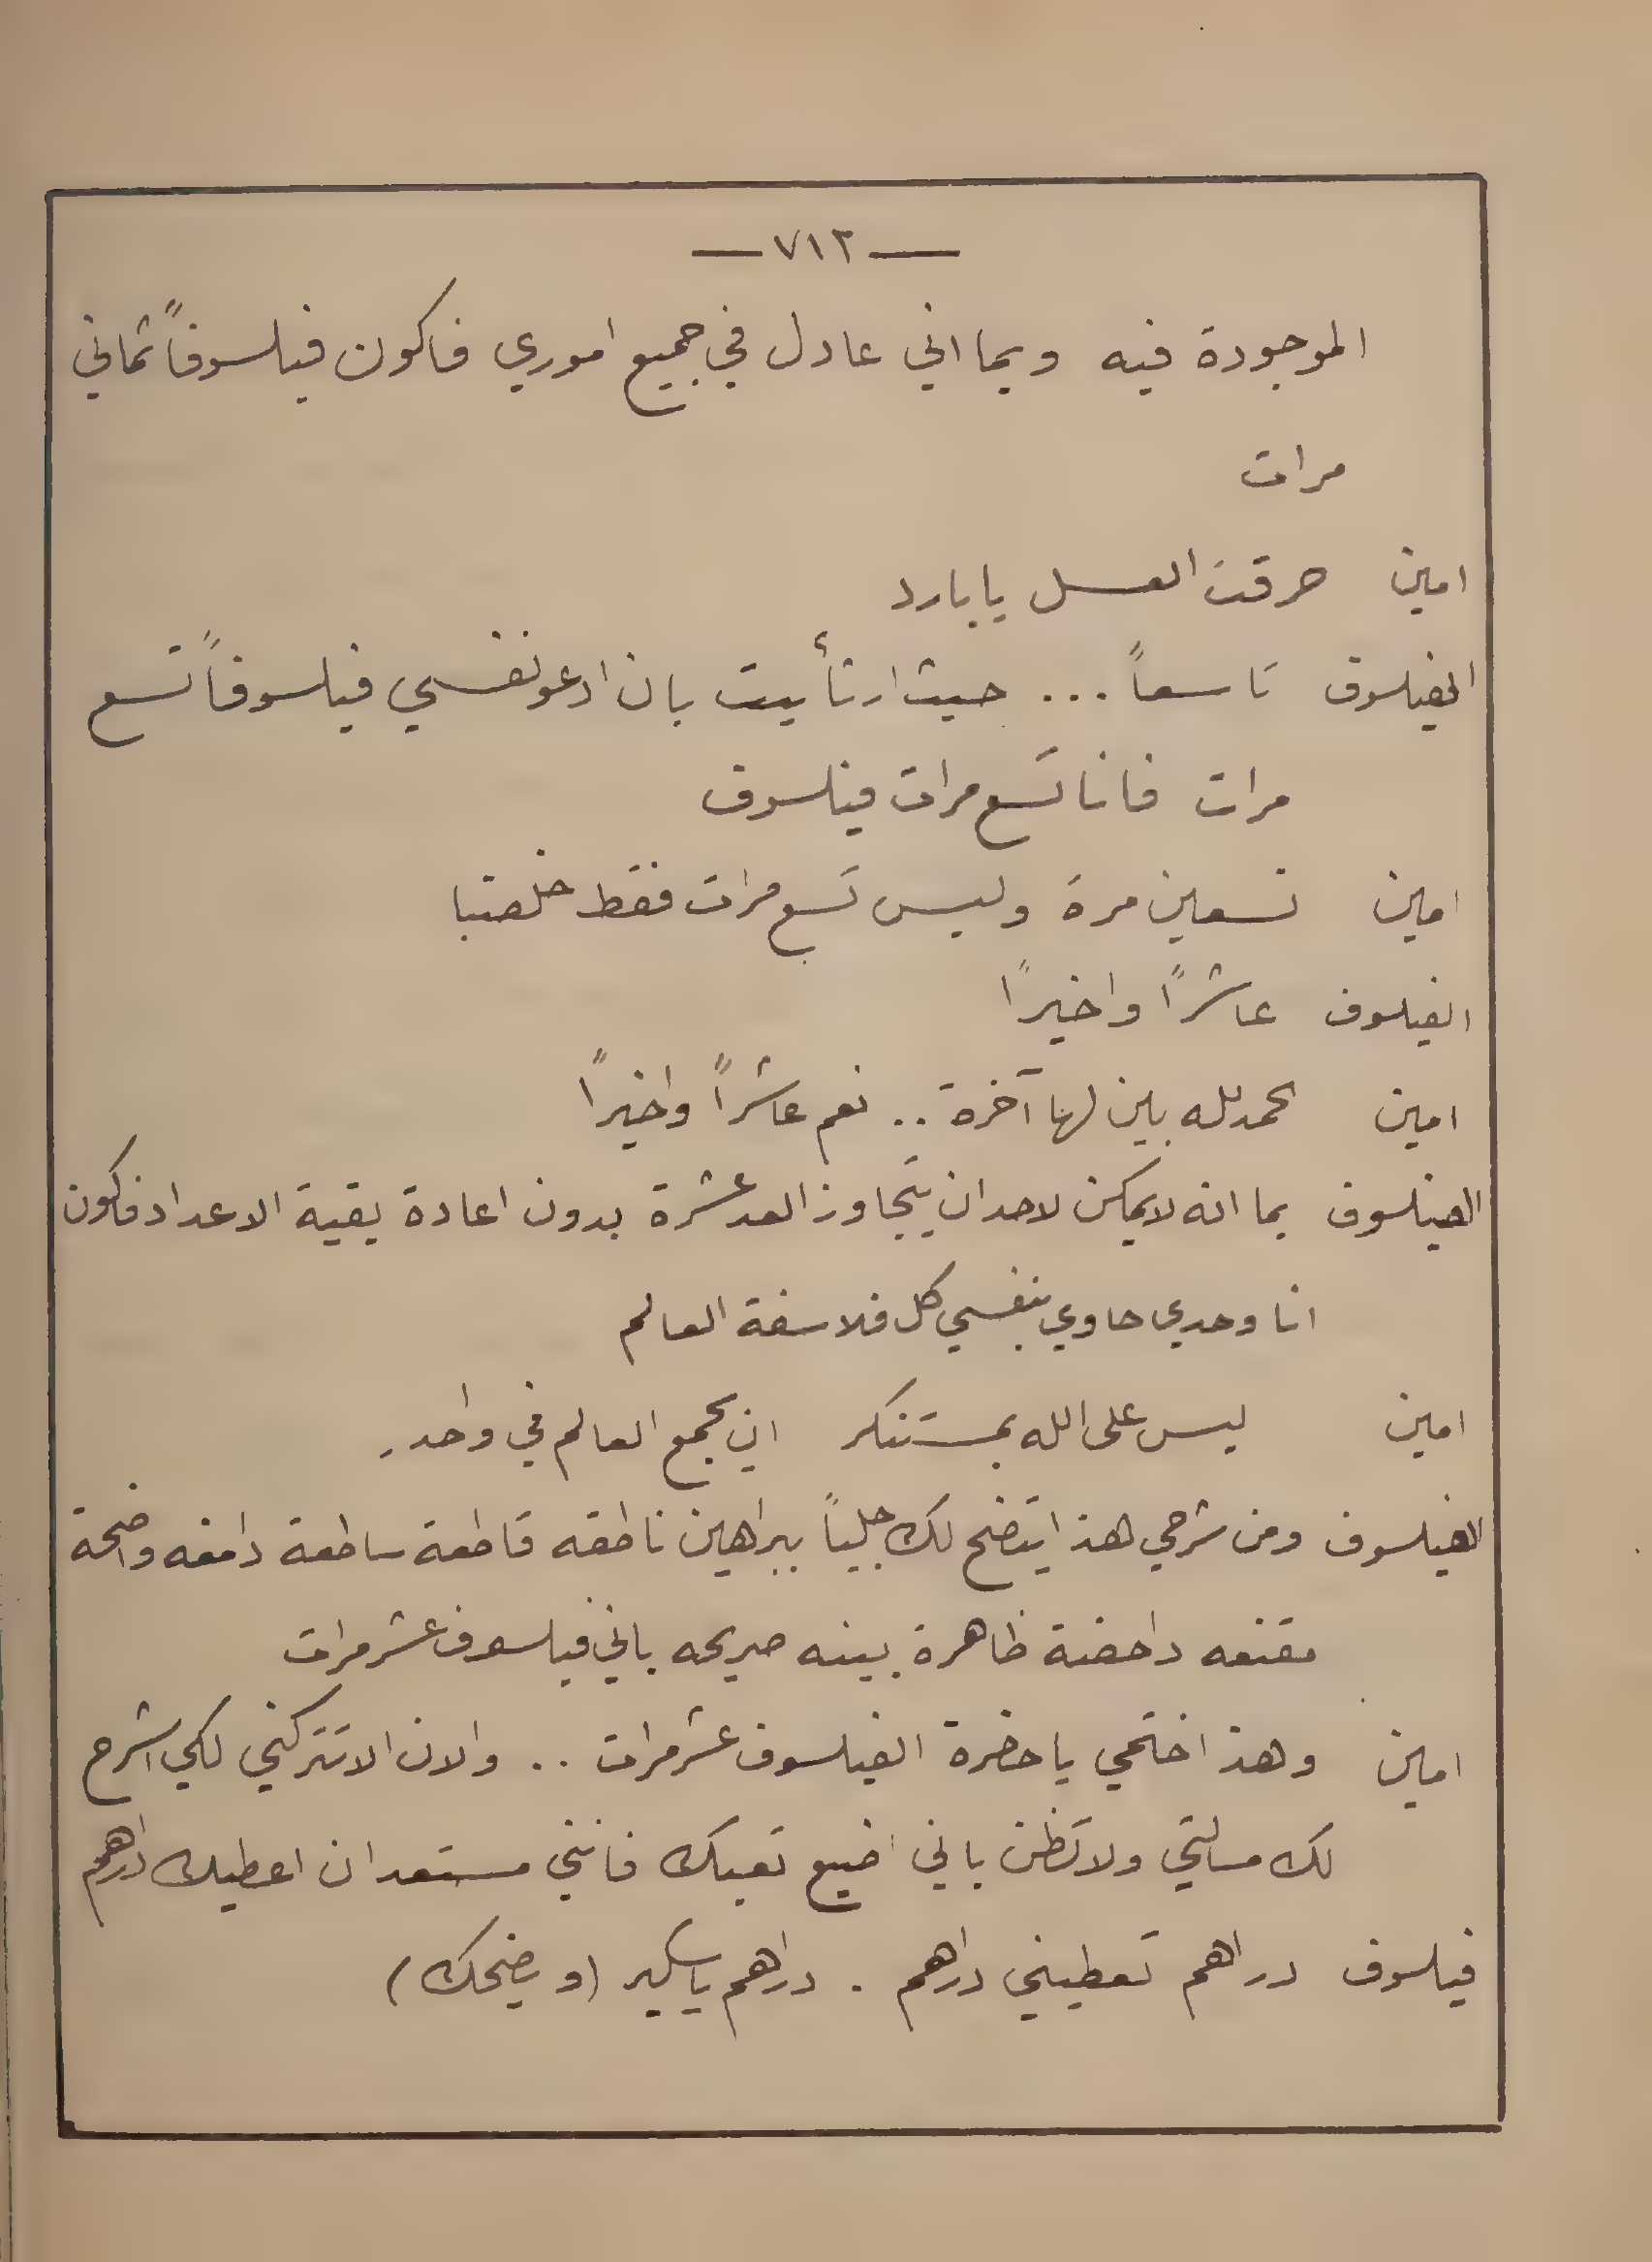 — ٧١٢ —
الموجودة فيه وبما اني عادل في جميع اموري فاكون فيلسوفاً ثماني
مرات
امين حرقت العسل يا بارد
الفيلسوف تاسعاً ... حيث ارتأييت بان ادعو نفسي فيلسوفاً تسع
مرات فانا تسع مرات فيلسوف
امين تسعين مرة وليس تسع مرات فقط خلصتبا
الفيلسوف عاشراً واخيراً
امين الحمدلله بين لها آخرة .. نعم عاشراً واخيراً
الفيلسوف بما انه لا يمكن لاحد ان يتجاوز العد عشرة بدون اعادة بقية الاعداد فاكون
انا وحدي حاوي بنفسي كل فلاسفة العالم
امين ليس على الله بمستنكر ان يجمع العالم في واحد
الفيلسوف ومن شرحي هذا يتضح لك جلياً ببراهين ناطقه قاطعة ساطعة دامغه واضحة
مقنعه داحضة ظاهرة بينه صريحه باني فيلسوف عشر مرات
امين وهذ اختمي يا حضرة الفيلسوف عشر مرات .. والان الا تتركني لكي اشرح
لك مسالتي ولا تظن باني اضيع تعبك فانني مستعد ان اعطيك دراهم
فيلسوف دراهم تعطيني دراهم . دراهم يا سكير (و يضحك)